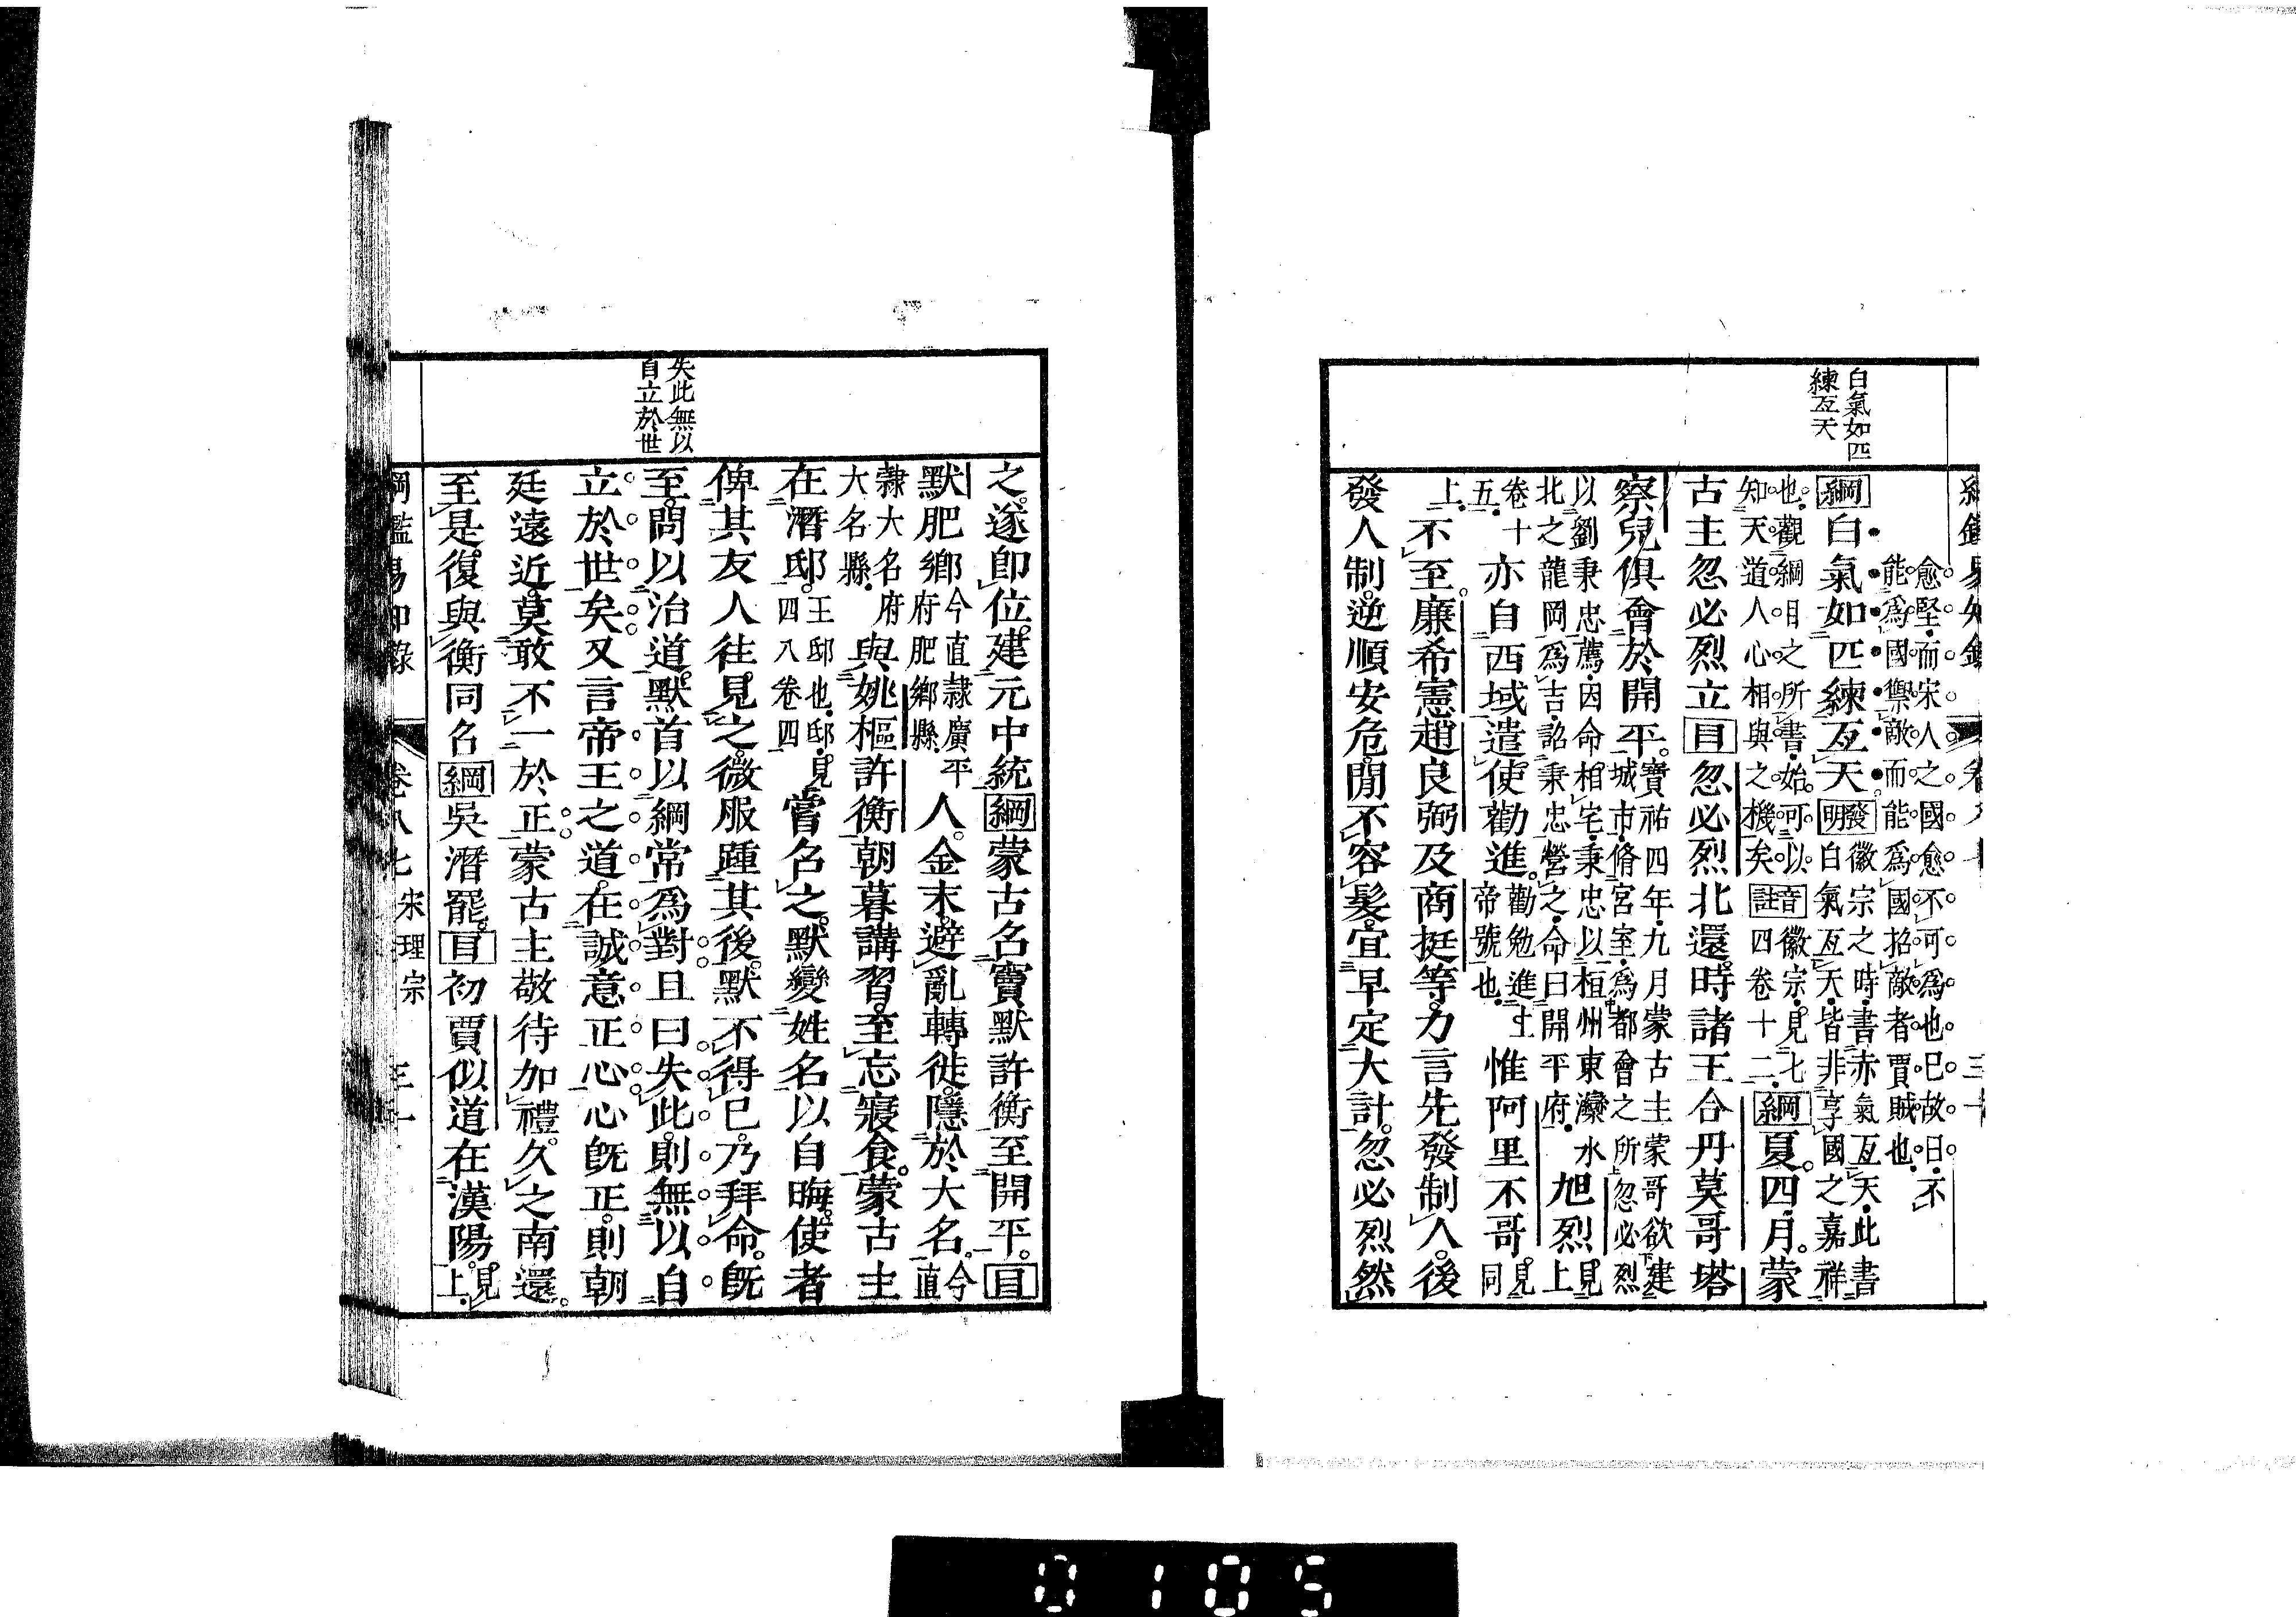 白氣如匹
練亙天
愈堅而宋人之國愈不可爲也已故曰不
能爲國禦敵而能爲國招敵者賈賊也
綱白氣如匹練亙天發明徽宗之時書赤氣亙天此書
白氣亙天皆非享國之嘉祥
也觀綱目之所書始可以
知天道人心相與之機矣音註徽宗見七
四卷十二綱夏四月蒙
古主忽必烈立目忽必烈北還時諸王合丹莫哥塔
察兒俱會於開平寶祐四年九月蒙古主蒙哥欲建
城市脩宮室爲都會之所忽必烈
以劉秉忠薦因命相宅秉忠以桓州東灤水
北之龍岡爲吉詔秉忠營之命曰開平府旭烈見上
卷十
五亦自西域遣使勸進勸勉進上
帝號也惟阿里不哥見同
上不至廉希憲趙良弼及商挺等力言先發制人後
發人制逆順安危閒不容髮宜早定大計忽必烈然
失此無以
自立於世
之遂卽位建元中統綱蒙古召竇默許衡至開平目
默肥鄉今直隸廣平
府肥鄉縣人金末避亂轉徙隱於大名今直
隸大名府
大名縣與姚樞許衡朝暮講習至忘寢食蒙古主
在潛邸王邸也邸見
四八卷四嘗召之默變姓名以自晦使者
俾其友人往見之微服踵其後默不得已乃拜命旣
至問以治道默首以綱常爲對且曰失此則無以自
立於世矣又言帝王之道在誠意正心心旣正則朝
廷遠近莫敢不一於正蒙古主敬待加禮久之南還
至是復與衡同召綱吳潛罷目初賈似道在漢陽見
上
綱鑑易知錄 卷八七 宋理宗 三一